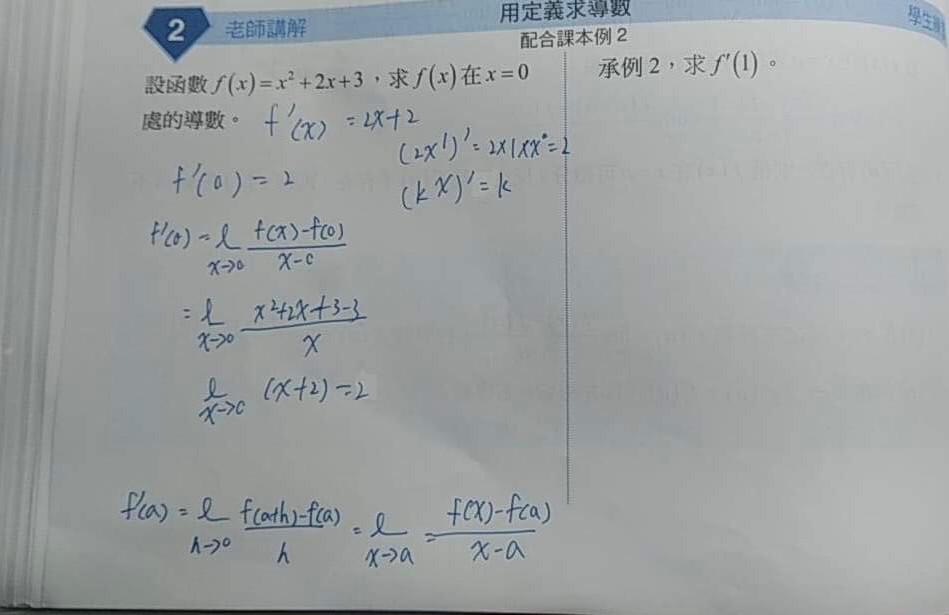 2 老師講解
用定義求導數
配合課本例 2
學生
設函數 f(x)=x²+2x+3，求 f(x) 在 x=0
處的導數。 f'(x) = 2x+2
(2x¹)' = 2×1×x⁰=2
f'(0) = 2
(kx)' = k
f'(0) = l x→0 f(x)-f(0) / x-0
= l x→0 x²+2x+3-3 / x
l x→0 (x+2)=2
f'(a) = l h→0 f(a+h)-f(a) / h = l x→a = f(x)-f(a) / x-a
承例 2，求 f'(1)。